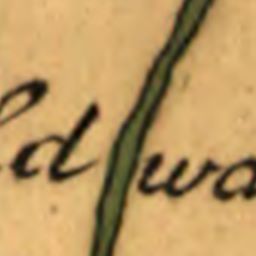 ld wa